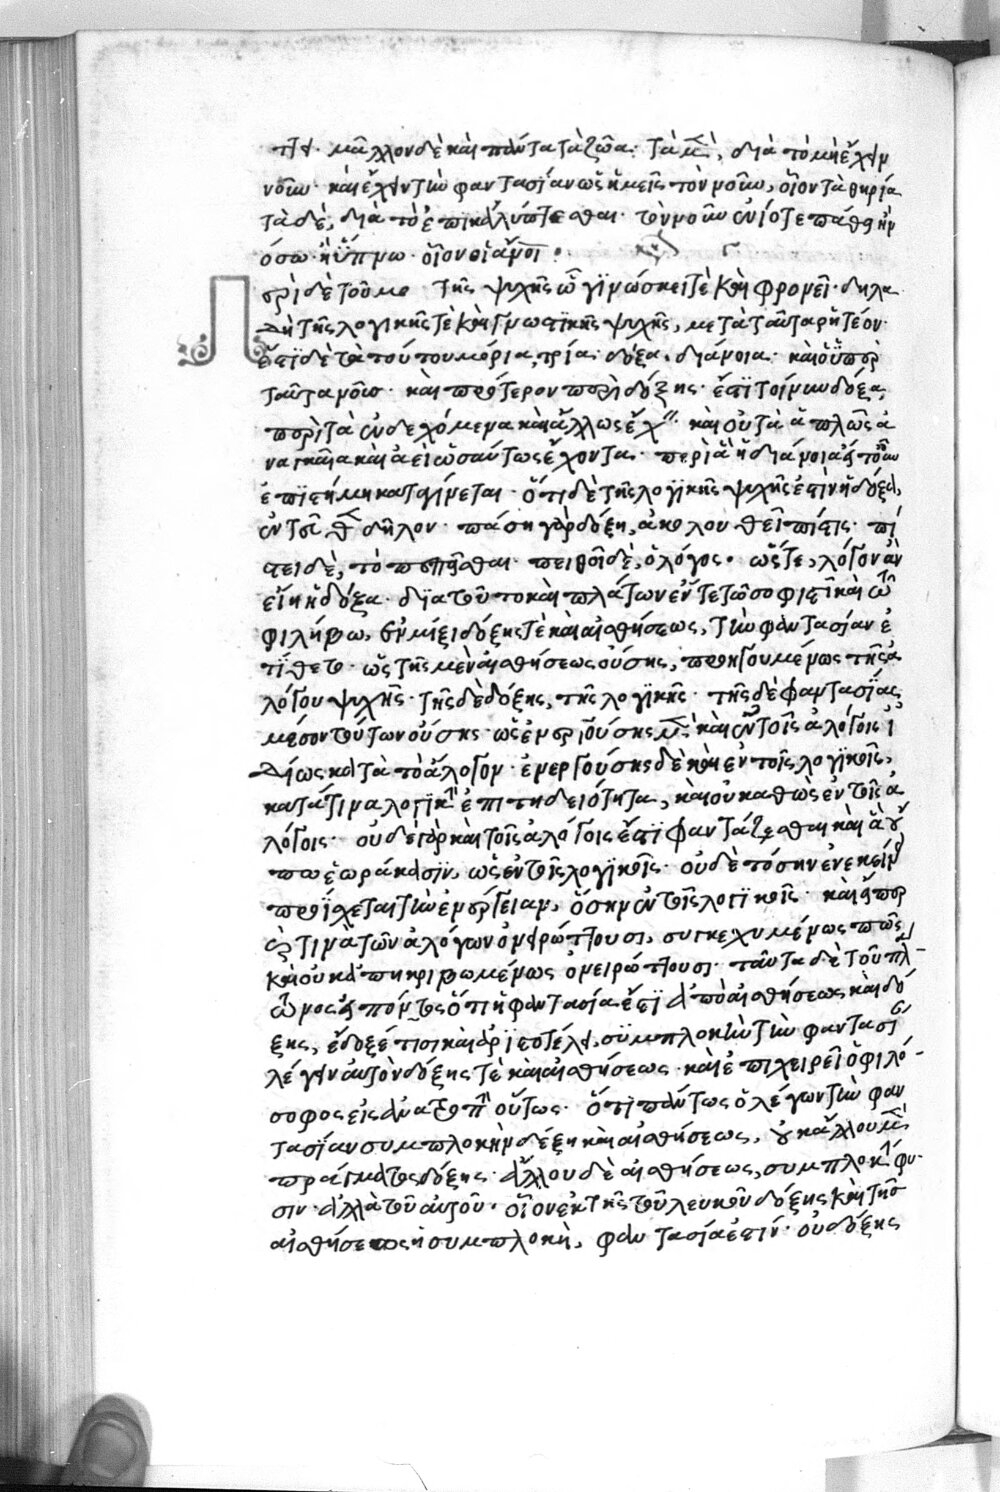 τει· μᾶλλον δὲ καὶ πάντα τὰ ζῶα· τὰ μὲν, διὰ τὸ μὴ ἔχειν
νοῦν· καὶ ἔχειν τὴν φαντασίαν ὡς ἡμεῖς τὸν νοῦν, οἷον τὰ θηρία
τὰ δὲ, διὰ τὸ ἐπικαλύπτεσθαι· τὸν νοῦν ἐνίοτε πάθει ἢ ν
όσω· ἢ ὕπνω· οἷον οἱ ἄνοι:
Περὶ δὲ τοῦ μο τῆς ψυχῆς ὧ γινώσκει τὲ καὶ φρονεῖ· δηλα
δὴ τῆς λογικῆς τὲ καὶ γνωστικῆς ψυχῆς, μετὰ ταῦτα ῥητέον·
ἔστι δὲ τὰ τούτου μόρια, τρία· δόξα· διάνοια· καὶ ὁ ὑπὲρ
ταῦτα νοῦς· καὶ πρότερον περὶ δόξης· ἔστι τοίνυν δόξα,
περὶ τὰ ἐνδεχόμενα καὶ ἄλλως ἔχειν· καὶ οὐ τὰ ἁπλῶς ἀ
ναγκαῖα καὶ ἀεὶ ὡσαύτως ἔχοντα· περὶ ἃ ἡ διάνοια
ἐπιστήμη καταγίνεται· ὅτι δὲ τῆς λογικῆς ψυχῆς ἐστὶν ἡ δόξα,
ἐντεῦθεν δῆλον· πάση γὰρ δόξη, ἀκολουθεῖ πίστις· πί
στει δὲ, τὸ πεπεῖσθαι· πειθοῖ δὲ, ὁ λόγος· ὥστε, λόγον ἂν
εἴη ἡ δόξα· διὰ τοῦτο καὶ πλάτων ἔν τε τῶ σοφιστῆ καὶ τῶ
φιλήβω, ἐν μίξει δόξης τὲ καὶ αἰσθήσεως, τὴν φαντασίαν ἐ
τίθετο· ὡς τῆς μὲν αἰσθήσεως οὔσης, προηγουμένως τῆς ἀ
λόγου ψυχῆς· τῆς δὲ δόξης, τῆς λογικῆς· τῆς δὲ φαντασίας
μέσον τούτων οὔσης· ὡς ἐνεργούσης μὲν καὶ ἐν τοῖς ἀλόγοις ἰ
δίως κατὰ τὸ ἄλογον· ἐνεργούσης δὲ καὶ ἐν τοῖς λογικοῖς,
κατά τινα λογικὴν ἐπιτηδειότητα, καὶ οὐ καθὼς ἐν τοῖς ἀ
λόγοις· οὐδὲ γὰρ καὶ τοῖς ἀλόγοις ἔστι φαντάζεσθαι καὶ ἃ οὔ
πω ἑωράκασιν, ὡς ἐν τοῖς λογικοῖς· οὐδὲ τόσην ἐν ἐκείν
προΐσχεται τὴν ἐνέργειαν, ὅσην ἐν τοῖς λογικοῖς· καὶ εἴπερ
τινὰ τῶν ἀλόγων ὀνειρώττουσι, συγκεχυμένως πῶς
καὶ οὐκ ἀπηκριβωμένως ὀνειρώττουσι· ταῦτα δὲ τοῦ πλ
ωνος εἰπόντος ὅτι ἡ φαντασία ἔστι ἀπὸ αἰσθήσεως καὶ δό
ξης, ἔδοξέ τισι καὶ ἀριστοτέλει, συμπλοκὴν τὴν φαντασί
λέγειν αὐτὸν δόξης τὲ καὶ αἰσθήσεως· καὶ ἐπιχειρεῖ ὁ φιλό-
σοφος εἰς ἀνατροπὴν οὕτως· ὅτι πάντως ὁ λέγων τὴν φαν
τασίαν συμπλοκὴν δόξη καὶ αἰσθήσεως, οὐκ ἄλλου μὲν
πράγματος δόξης· ἄλλου δὲ αἰσθήσεως, συμπλοκήν φη-
σιν· ἀλλὰ τοῦ αὐτοῦ· οἷον ἐκ τῆς τοῦ λευκοῦ δόξης καὶ τῆς
αἰσθήσεως ἡ συμπλοκὴ, φαντασία ἐστίν· οὐ δόξης